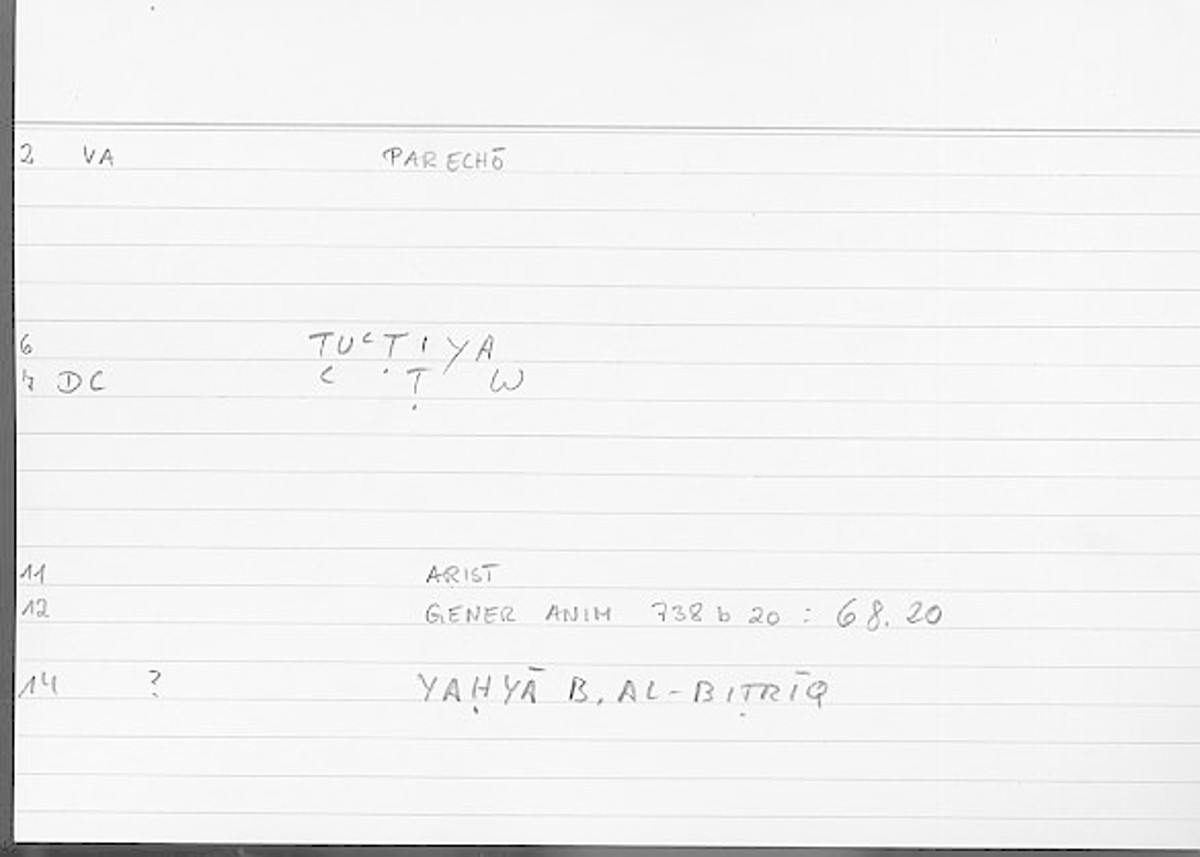 2 VA PARECHŌ
6 TUʿṬIYA
7 DC ʿ Ṭ W
11 ARIST
12 GENER ANIM 738 b 20 : 68.20
14 ? YAḤYĀ B. AL-BIṬRĪQ